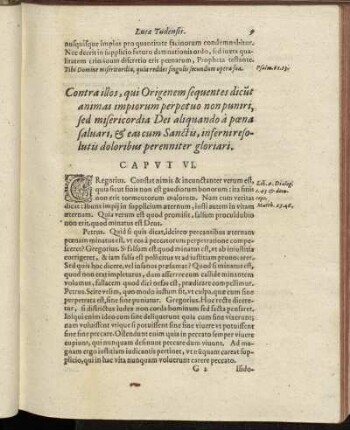 Lucæ Tudensis.
9
nusquisque impius pro quantitate facinorum condemnabitur.
Nec deerit in supplicio futuro damnationis ordo, sed iuxta qua-
litatem criminum discretio erit pœnarum, Propheta testante.
Tibi Domine misericordia, quia reddes singulis secundum opera sua.
Psalm. 61. 13.
Contra illos, qui Origenem sequentes dicūt
animas impiorum perpetuo non puniri,
sed misericordia Dei aliquando à pœna
saluari, & eas cum Sanctis, inferni reso-
lutis doloribus perenniter gloriari.
CAPVT VI.
Gregorius. Constat nimis & incunctanter verum est,
quia sicut finis non est gaudiorum bonorum: ita finis
non erit tormentorum malorum. Nam cum veritas
dicat: Ibunt impij in supplicium æternum, iusti autem in vitam
æternam. Quia verum est quod promisit, falsum proculdubio
non erit, quod minatus est Deus.
Lib. 4. Dialog.
Matth. 25. 46.
Petrus. Quid si quis dicat, idcirco peccantibus æternam
pœnam minatus est, vt eos à peccatorum perpetratione compe-
sceret? Gregorius. Si falsum est quod minatus est, vt ab iniustitia
corrigeret, & iam falsa est pollicitus vt ad iustitiam prouocaret.
Sed quis hoc dicere, vel insanus præsumat? Quod si minatus est,
quod non erat impleturus, dum asserere eum callide minantem
volumus, fallacem quod dici nefas est, prædicare compellimur.
Petrus. Scire velim, quo modo iustum sit, vt culpa, quæ cum fine
perpetrata est, sine fine puniatur. Gregorius. Hoc recte dicere-
tur, si districtus iudex non corda hominum sed facta pensaret.
Iniqui enim ideo cum fine deliquerunt quia cum fine vixerunt;
nam voluissent vtique si potuissent sine fine viuere vt potuissent
sine fine peccare. Ostendunt enim quia in peccato semper viuere
cupiunt, qui nunquam desinunt peccare dum viuunt. Ad ma-
gnam ergo iustitiam iudicantis pertinet, vt nūquam careat sup-
plicio, qui in hac vita nunquam voluerunt carere peccato.
G 2
Isido-